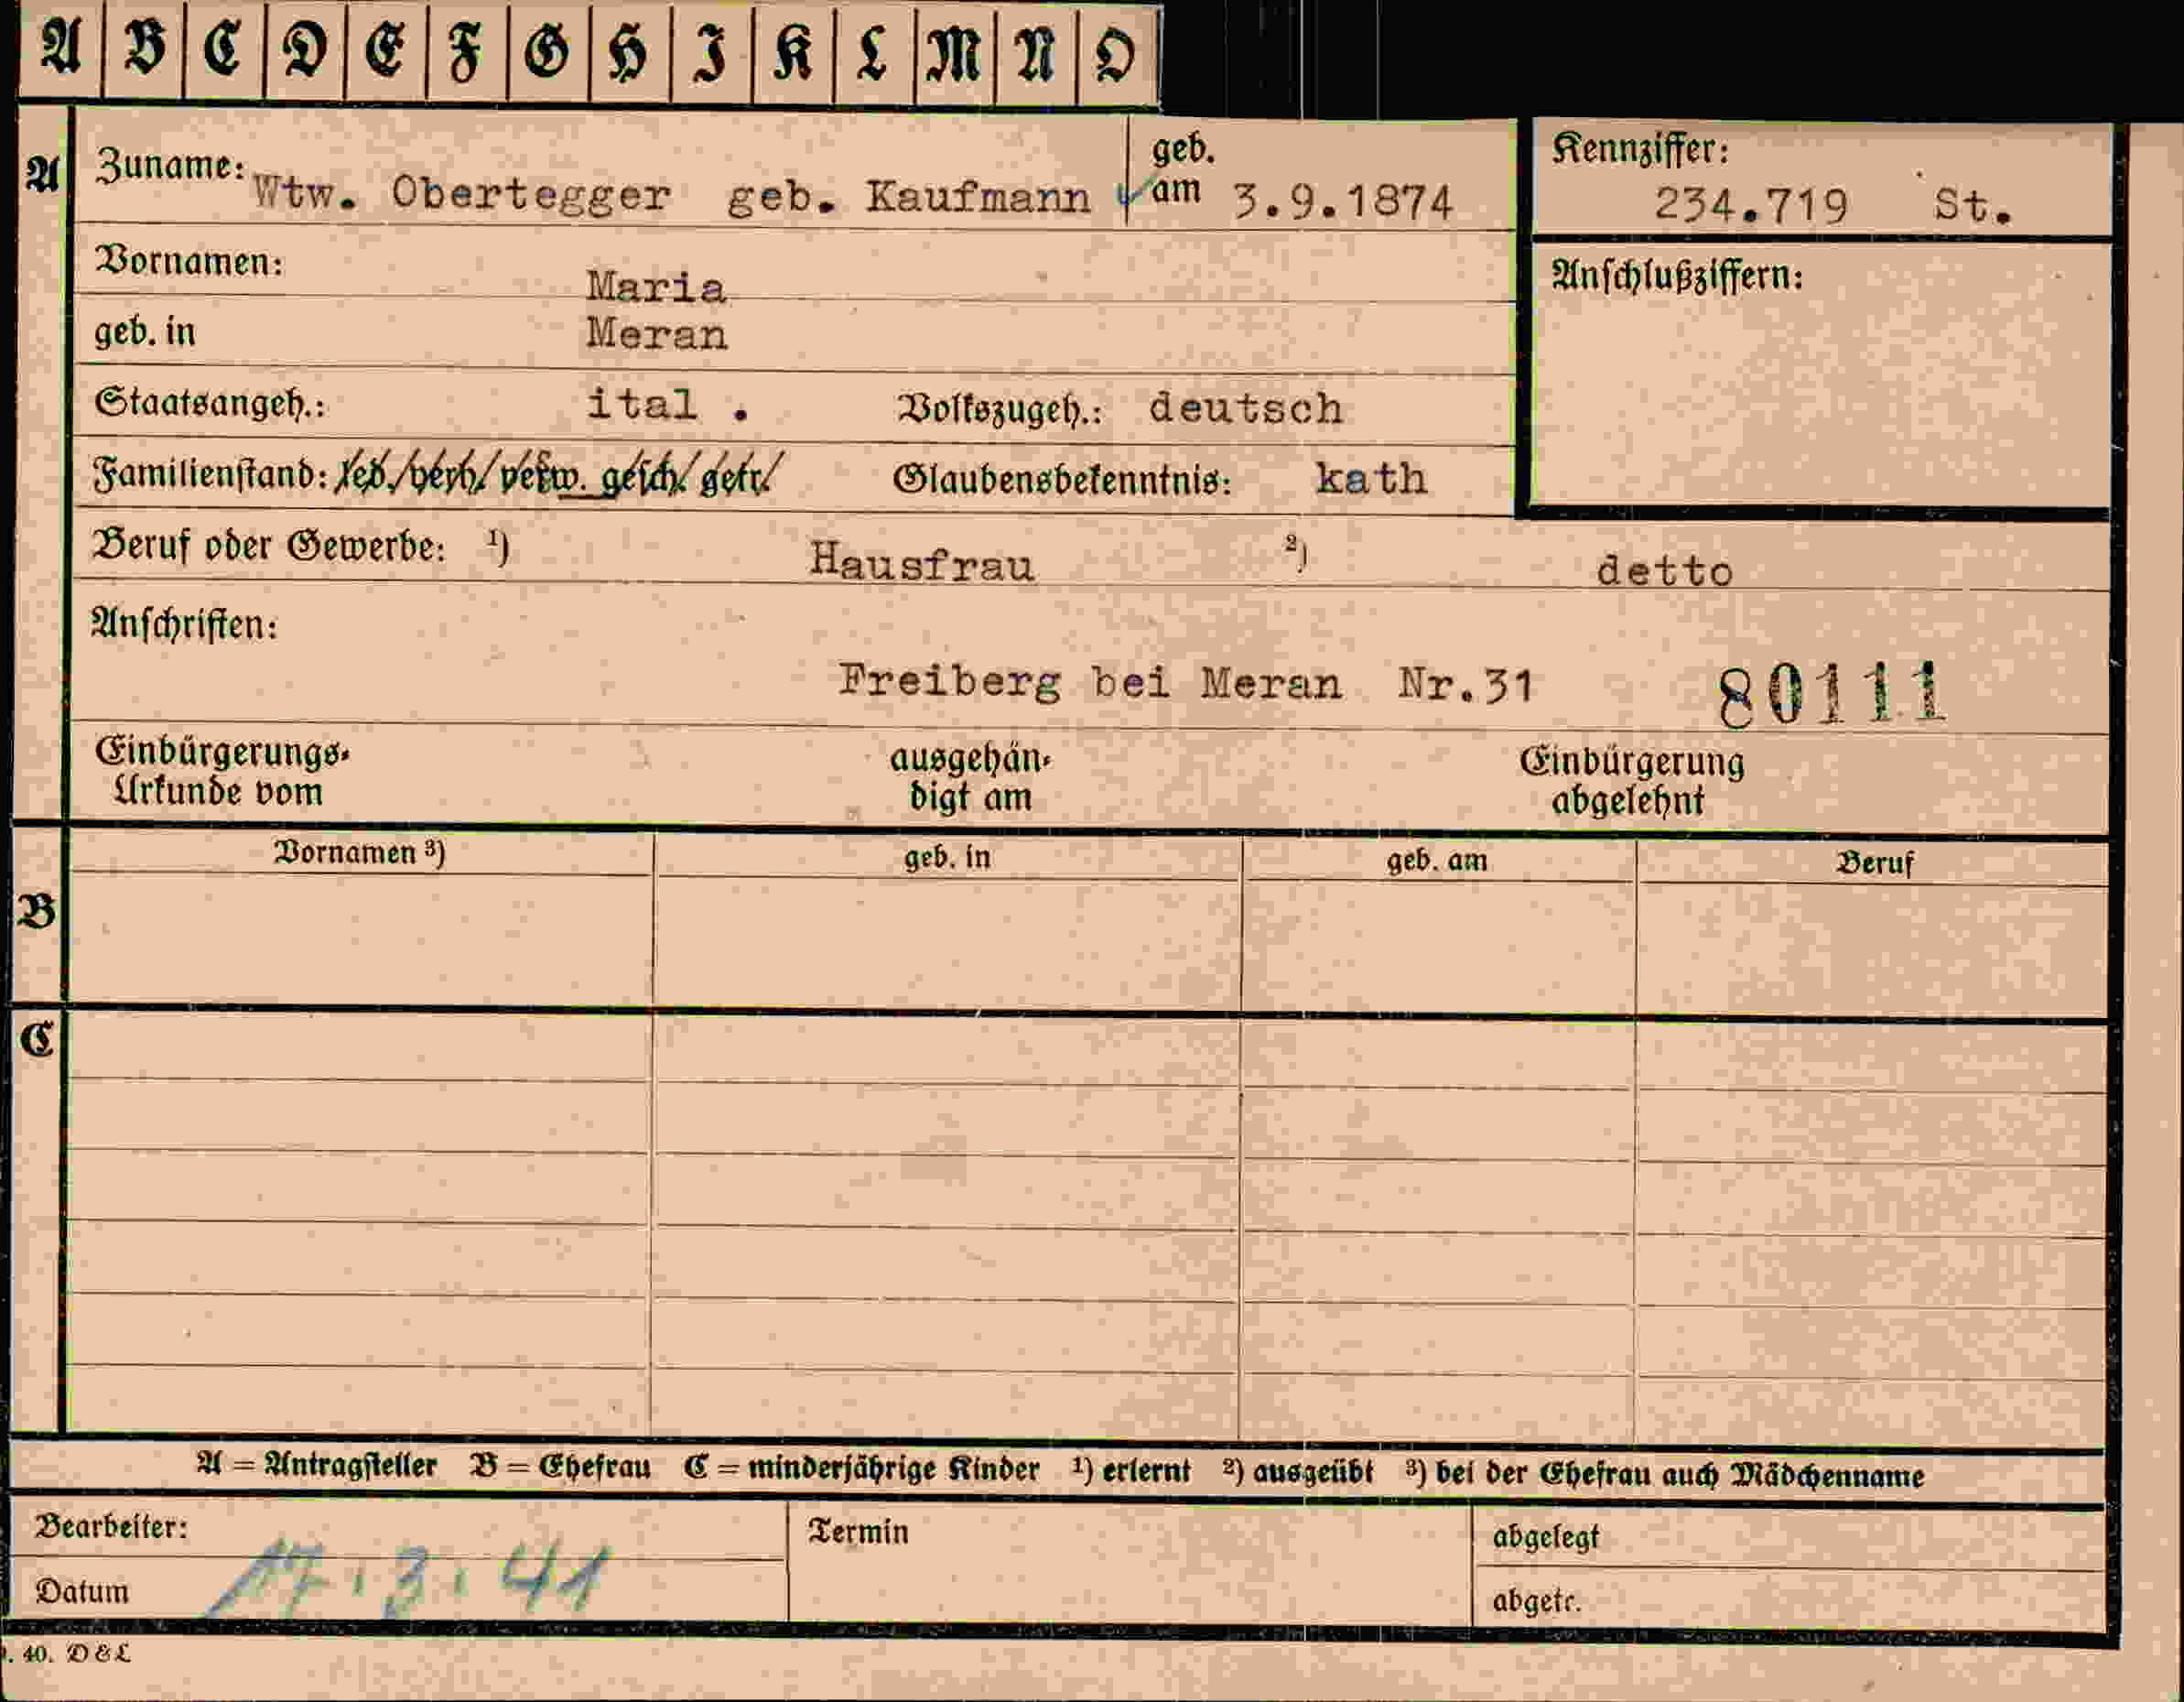 A B C D E F G H I K L M N O
A
Zuname: Wtw. Obertegger geb. Kaufmann
geb. am 3.9.1874
Kennziffer:
234.719 St.
Vornamen: Maria
Anschlußziffern:
geb. in Meran
Staatsangeh.: ital . Volkszugeh.: deutsch
Familienstand: led./verh/verw. gesch/getr/ Glaubensbekenntnis: kath
Beruf oder Gewerbe: 1) Hausfrau 2) detto
Anschriften:
Freiberg bei Meran Nr.31 80111
Einbürgerungs- ausgehän- Einbürgerung
Urkunde vom digt am abgelehnt
Vornamen 3) geb. in geb. am Beruf
B
C
A = Antragsteller B = Ehefrau C = minderjährige Kinder 1) erlernt 2) ausgeübt 3) bei der Ehefrau auch Mädchenname
Bearbeiter: Termin abgelegt
Datum 17.3.41 abgetr.
. 40. D & L